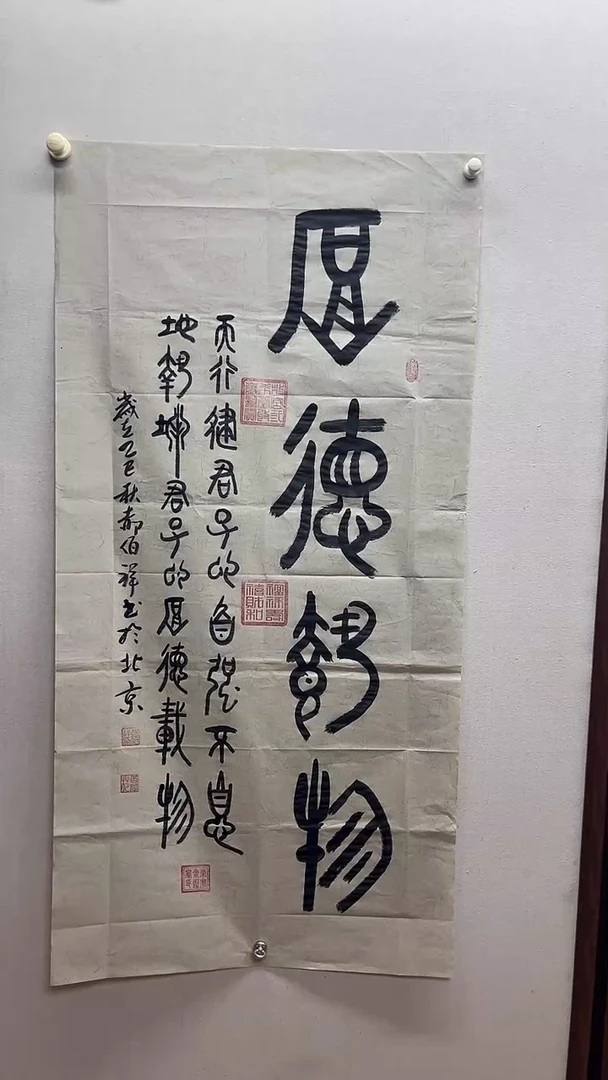 厚德載物
天行健君子以自强不息
地勢坤君子以厚德載物
歲在乙巳秋郝伯祥书于北京